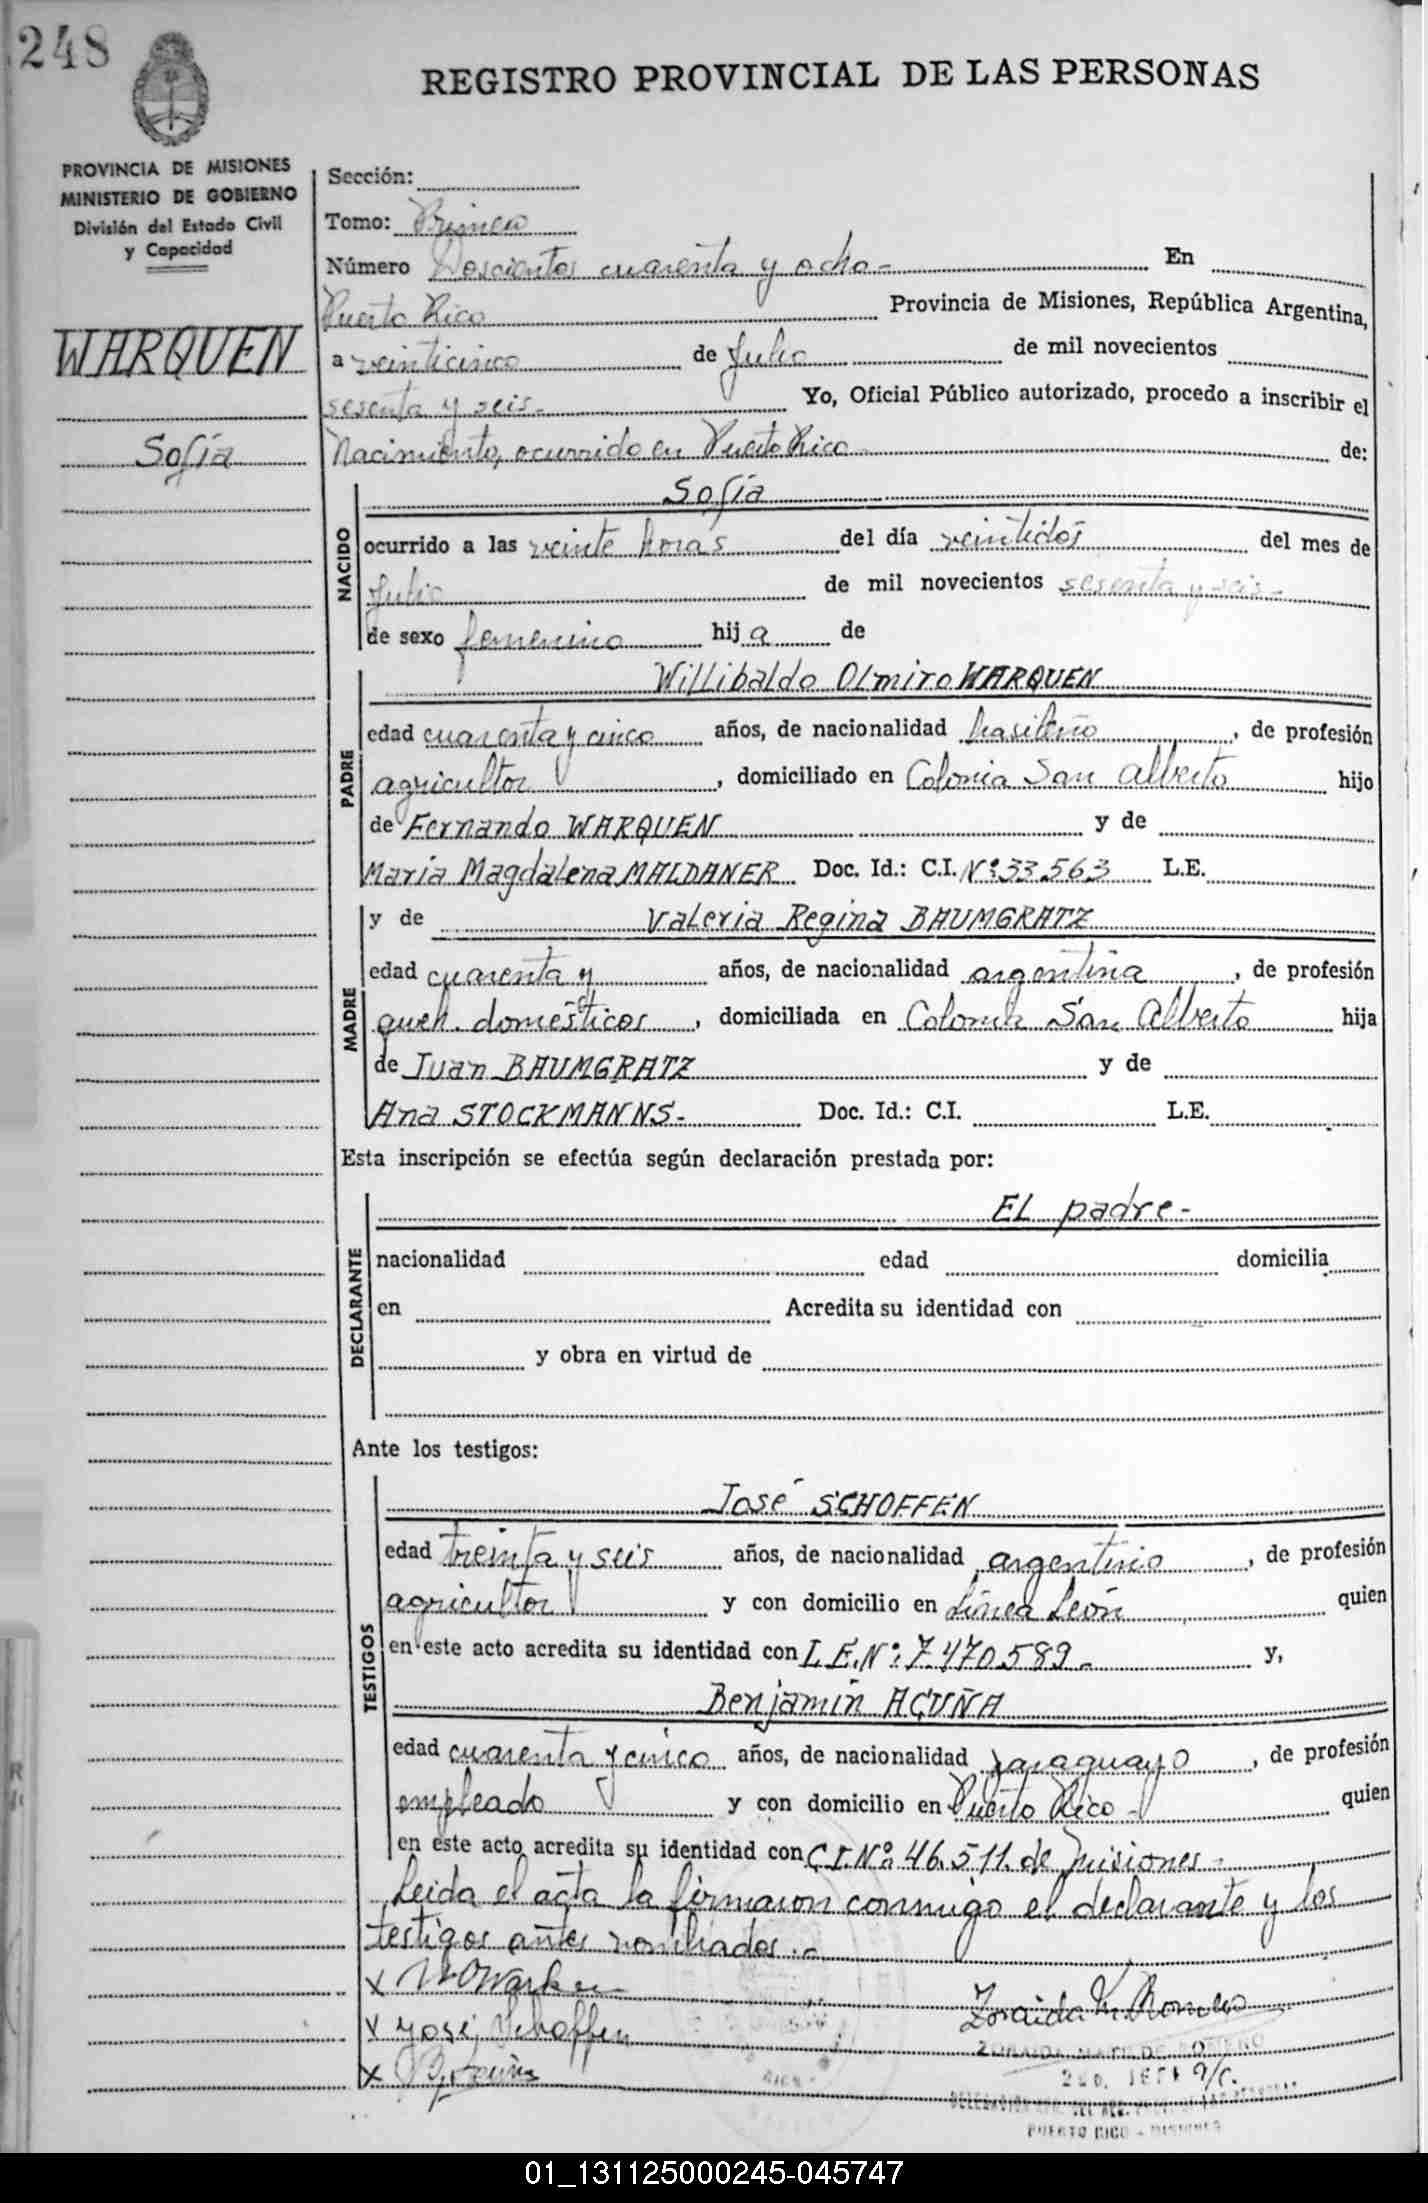 248
REGISTRO PROVINCIAL DE LAS PERSONAS
PROVINCIA DE MISIONES
MINISTERIO DE GOBIERNO
División del Estado Civil
y Capacidad
WARQUEN
Sofía
Sección:
Tomo: Primero
Número Doscientos cuarenta y ocho - En
Puerto Rico Provincia de Misiones, República Argentina,
a veinticinco de Julio de mil novecientos
sesenta y seis - Yo, Oficial Público autorizado, procedo a inscribir el
Nacimiento, ocurrido en Puerto Rico - de:
NACIDO
Sofía
ocurrido a las veinte horas del día veintidós del mes de
Julio de mil novecientos sesenta y seis -
de sexo femenino hij a de
PADRE
Willibaldo Olmiro WARQUEN
edad cuarenta y cinco años, de nacionalidad brasileño, de profesión
agricultor, domiciliado en Colonia San Alberto hijo
de Fernando WARQUEN y de
María Magdalena MALDANER Doc. Id.: C.I. Nº: 33.563 L.E.
MADRE
y de Valeria Regina BAUMGRATZ
edad cuarenta y años, de nacionalidad argentina, de profesión
queh. domésticos, domiciliada en Colonia San Alberto hija
de Juan BAUMGRATZ y de
Ana STOCKMANNS - Doc. Id.: C.I. L.E.
Esta inscripción se efectúa según declaración prestada por:
DECLARANTE
El padre -
nacionalidad edad domicilia
en Acredita su identidad con
y obra en virtud de
Ante los testigos:
TESTIGOS
José SCHOFFEN
edad treinta y seis años, de nacionalidad argentino, de profesión
agricultor y con domicilio en Línea León quien
en este acto acredita su identidad con L.E. Nº: 7.470.589 - y,
Benjamín ACUÑA
edad cuarenta y cinco años, de nacionalidad paraguayo, de profesión
empleado y con domicilio en Puerto Rico - quien
en este acto acredita su identidad con C.I. Nº 46.511. de Misiones -
Leida el acta la firmaron conmigo el declarante y los
testigos antes nombrados. -
x W O Warken
x José Schoffen
x B. Acuña
Zoraida M. Romero
ZORAIDA MATILDE ROMERO
2do. JEFE a/c.
PUERTO RICO - MISIONES
01_131125000245-045747